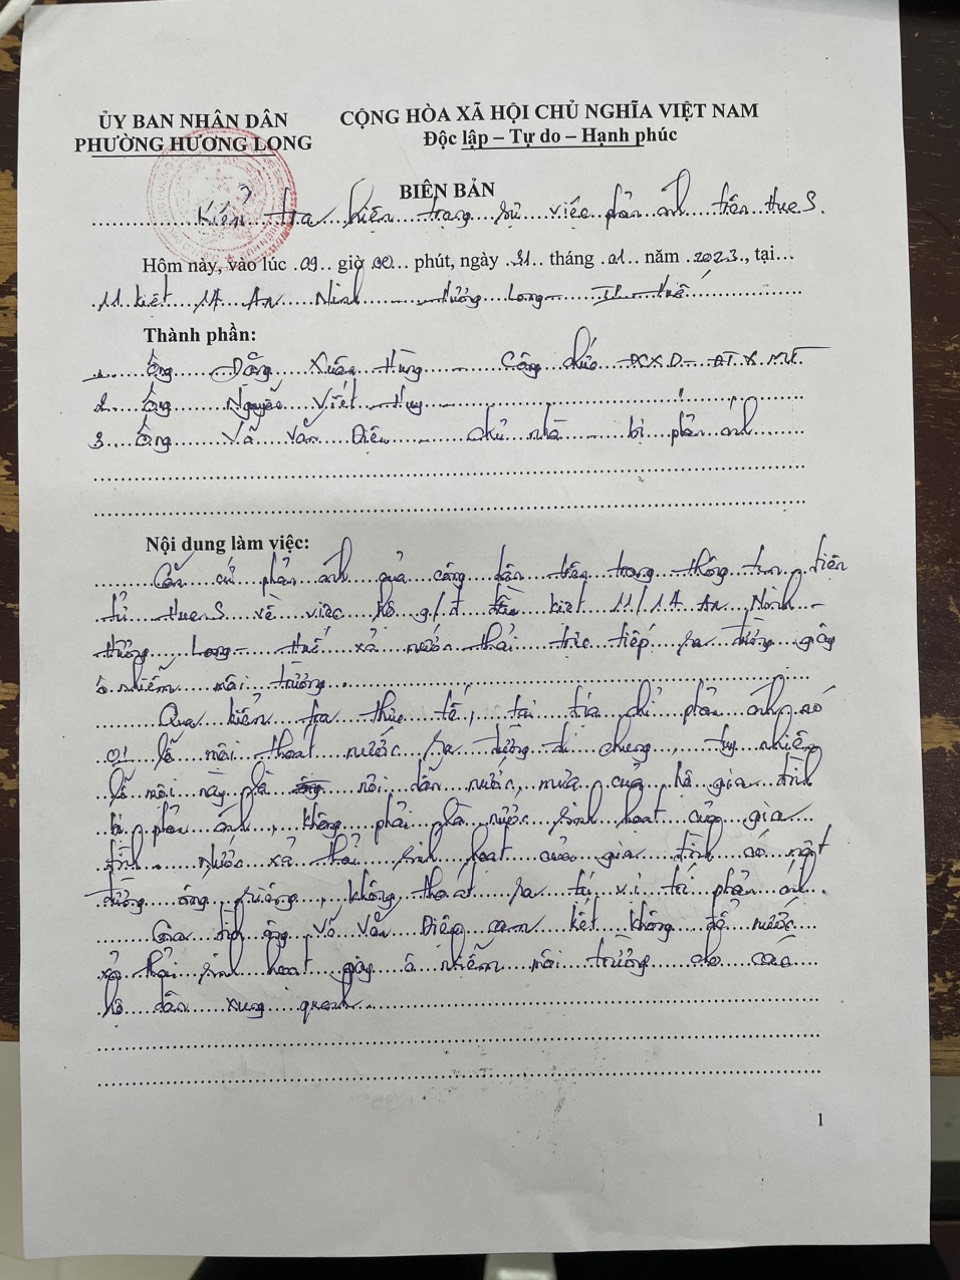 ỦY BAN NHÂN DÂN
PHƯỜNG HƯƠNG LONG
CỘNG HÒA XÃ HỘI CHỦ NGHĨA VIỆT NAM
Độc lập – Tự do – Hạnh phúc
BIÊN BẢN
Kiểm tra hiện trạng sự việc phản ánh trên HueS.
Hôm nay, vào lúc 09 giờ 00 phút, ngày 31 tháng 01 năm 2023, tại
11 kiệt 1A An Ninh - Hương Long - TP Huế
Thành phần:
1. Ông Đặng Xuân Hùng - Công chức ĐCXD-ĐT & MT
2. Ông Nguyễn Viết Huy
3. Ông Võ Văn Điệu - chủ nhà bị phản ánh
Nội dung làm việc:
Căn cứ phản ánh của công dân trên trang thông tin điện
tử HueS về việc hộ g/đ kiệt 11/1A An Ninh -
Hương Long - Huế xả nước thải trực tiếp ra đường gây
ô nhiễm môi trường.
Qua kiểm tra thực tế, tại địa chỉ phản ánh có
01 lỗ thoát nước ra đường đi chung, tuy nhiên
lỗ này là nơi dẫn nước mưa của hộ gia đình
bị phản ánh, không phải là nước sinh hoạt của gia
đình. Nước xả thải sinh hoạt của gia đình có một
đường ống riêng, không thoát ra từ vị trí phản ánh.
Gia đình ông Võ Văn Điệu cam kết không để nước
xả thải sinh hoạt gây ô nhiễm môi trường cho các
hộ dân xung quanh.
1